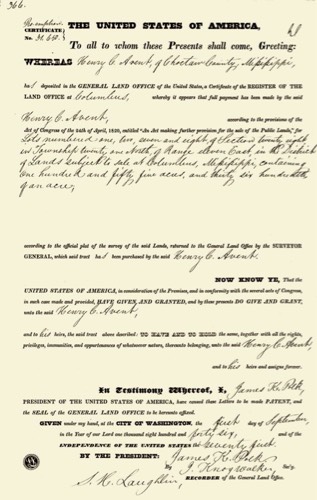 366.
THE UNITED STATES OF AMERICA,
CERTIFICATE
To all to whom these Presents shall come, Greeting:
WHEREAS Henry C. Avent, of Choctaw County, Mississippi,
has deposited in the GENERAL LAND OFFICE of the United States, a Certificate of the REGISTER OF THE
LAND OFFICE at Columbus, whereby it appears that full payment has been made by the said
Henry C. Avent, according to the provisions of the
Act of Congress of the 24th of April, 1820, entitled "An Act making further provision for the sale of the Public Lands," for
Lots numbered one, two, seven and eight, of Section twenty
in Township twenty one North, of Range eleven East, in the District
of Lands subject to sale at Columbus, Mississippi, containing
one hundred and fifty five acres, and thirty six hundredths
of an acre,
according to the official plat of the survey of the said Lands, returned to the General Land Office by the SURVEYOR
GENERAL, which said tract has been purchased by the said Henry C. Avent.
NOW KNOW YE, That the
UNITED STATES OF AMERICA, in consideration of the Premises, and in conformity with the several acts of Congress,
in such case made and provided, HAVE GIVEN AND GRANTED, and by these presents DO GIVE AND GRANT,
unto the said Henry C. Avent,
and to his heirs, the said tract above described: TO HAVE AND TO HOLD the same, together with all the rights,
privileges, immunities, and appurtenances of whatsoever nature, thereunto belonging, unto the said Henry C. Avent,
and to his heirs and assigns forever.
In Testimony Whereof, I, James K. Polk
PRESIDENT OF THE UNITED STATES OF AMERICA, have caused these Letters to be made PATENT, and
the SEAL of the GENERAL LAND OFFICE to be hereunto affixed.
GIVEN under my hand, at the CITY OF WASHINGTON, the first day of September,
in the Year of our Lord one thousand eight hundred and forty six, and of the
INDEPENDENCE OF THE UNITED STATES the seventy first.
BY THE PRESIDENT: James K. Polk
By J. Knox Walker, Sec'y.
S. H. Laughlin, RECORDER of the General Land Office.